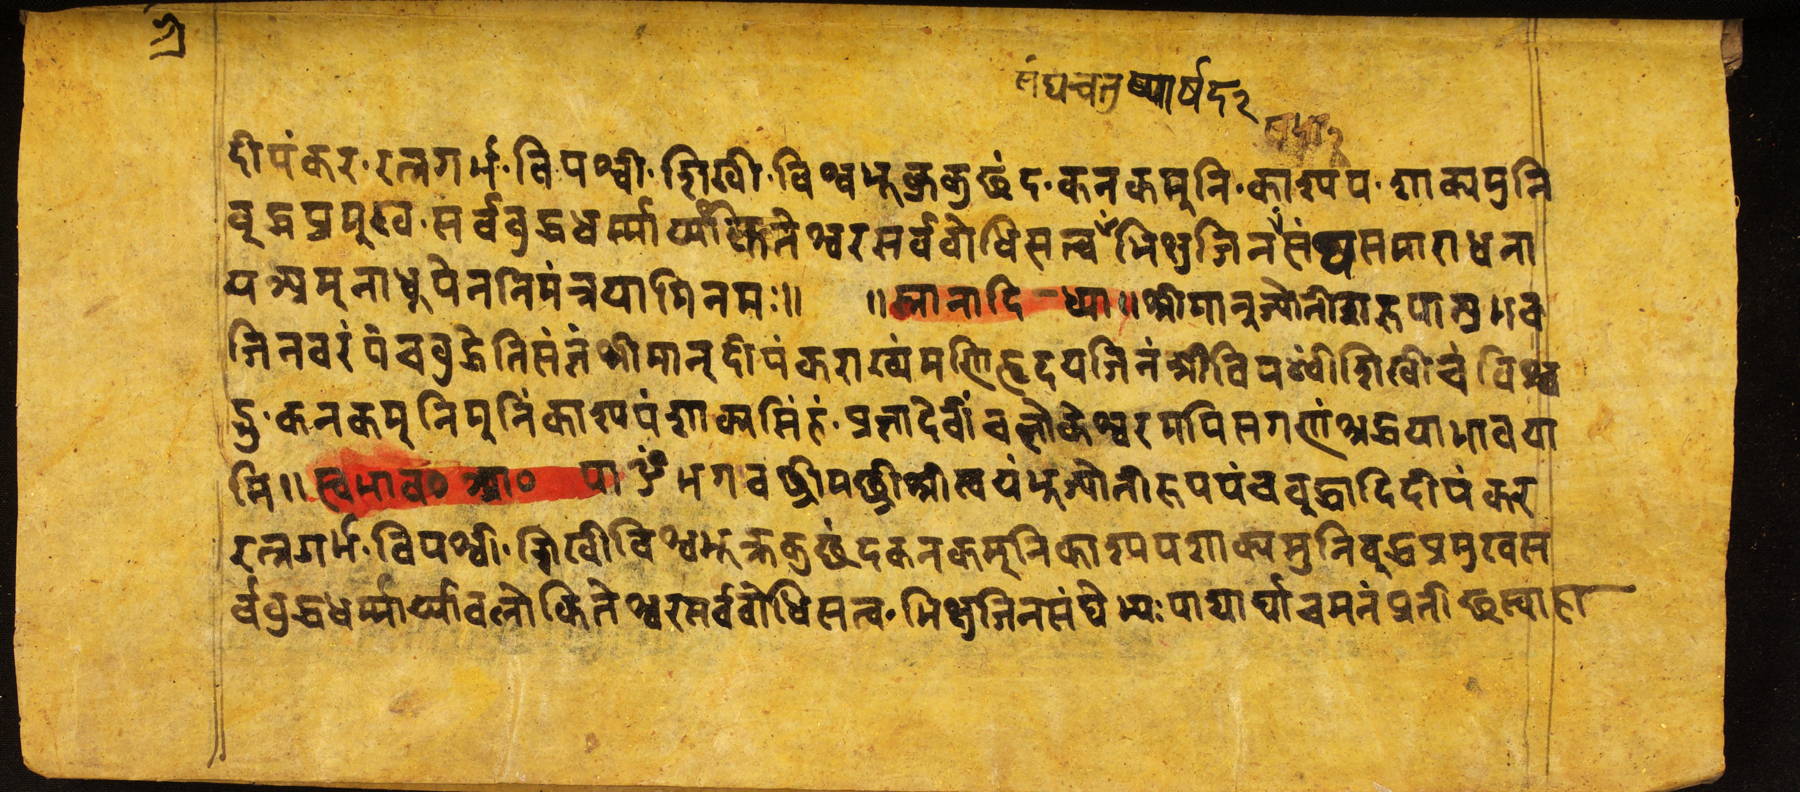 संघचतुष्पार्षद२
दीपंकर·रत्नगर्भ·विपश्वी·शिखी·विश्वभूक्रकुछंद·कनकमुनि·काश्यप·शाक्यमुनि
बुद्धप्रमुखे·सर्वबुद्धधर्म्मार्य्या तेश्वरसर्वबोधिसत्त्व भिक्षुजिन संघसमाराधना
यअमुनाधूपेननिमंत्रयामिनमः॥ ॥स्नानादि-ध्या॥श्रीमानुज्योतीरूपा
जिनवरंपंचबुद्धेतिसंतंश्रीमान्दीपंकराख्यंमणिहृदयजिनंश्रीविपश्वींशिखीचंविश्व
भु·कनकमुनिमुनिंकाश्यपंशाक्यसिंहं·प्रज्ञादेवींचलोकेश्वरमपिसगणंश्रद्धयाभावया
मि॥स्वभाव० आ० पा ॐ भगवञ्छ्रीमछ्रीश्रीस्वयंभूज्योतीरूपपंचबुद्धादिदीपंकर
रत्नगर्भ·विपश्वी·शिखीविश्वभूक्रकुछंदकनकमुनिकाश्यपशाक्यमुनिबुद्धप्रमुखस
र्वबुद्धधर्म्मार्य्यावलोकितेश्वरसर्वबोधिसत्त्व·भिक्षुजिनसंघेभ्यःपाद्यार्घाचमनंप्रतीछस्वाहा